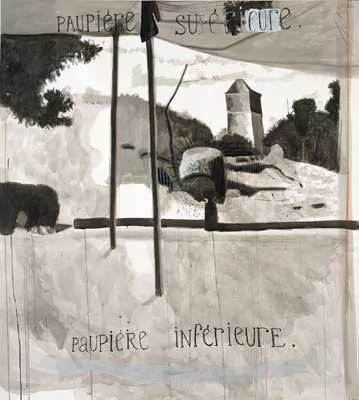 PAUPIÉRE SUPÉRIEURE.
PAUPIÉRE INFÉRIEURE.